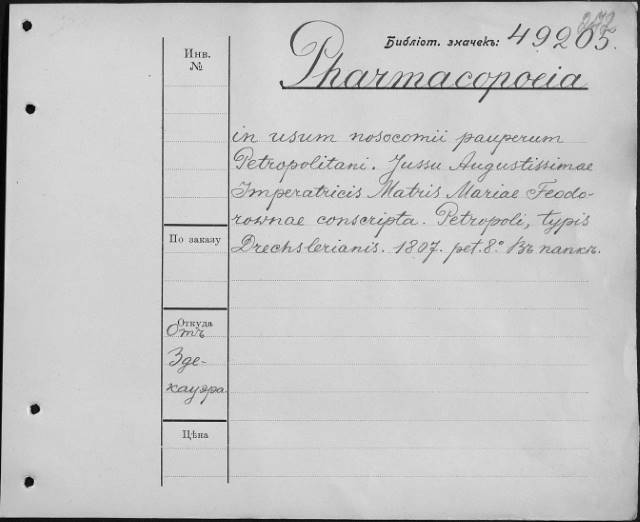 272
Библіот. значекъ: 49205.
Инв.
№
Pharmacopoeia
in usum nosocomii pauperum
Petropolitani. Jussu Augustissimae
Imperatricis Matris Mariae Feodo-
rownae conscripta. Petropoli, typis
Drechslerianis. 1807. pet. 8.° Въ папкѣ.
По заказу
Откуда
Отъ
Зде-
кауэра
Цѣна